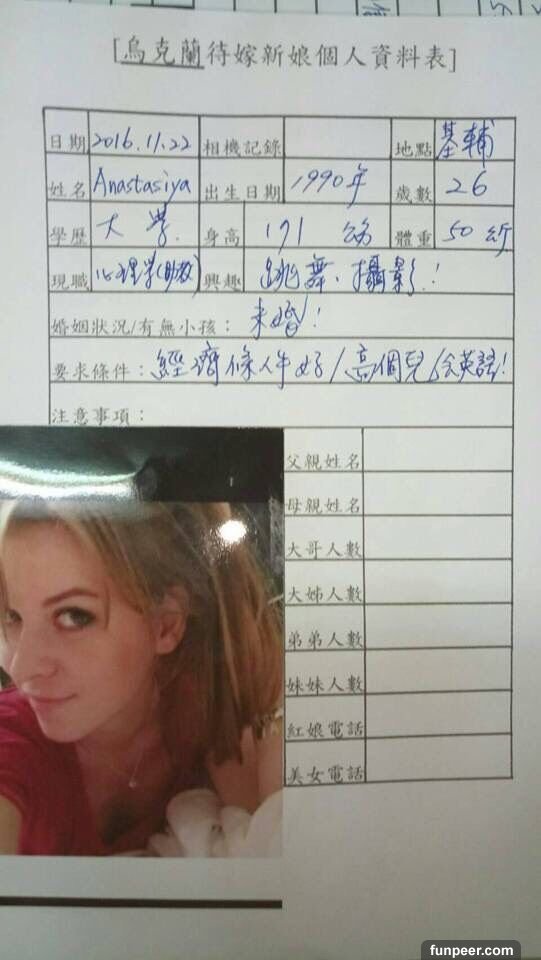 [烏克蘭待嫁新娘個人資料表]
日期 2016.11.22 相機記錄 地點 基輔
姓名 Anastasiya 出生日期 1990年 歲數 26
學歷 大學. 身高 171 公分 體重 50 公斤
現職 心理学(助教) 興趣 跳舞、攝影!
婚姻狀況/有無小孩: 未婚!
要求條件: 經濟條件好/高個兒/会英語!
注意事項:
父親姓名
母親姓名
大哥人數
大姊人數
弟弟人數
妹妹人數
紅娘電話
美女電話
funpeer.com